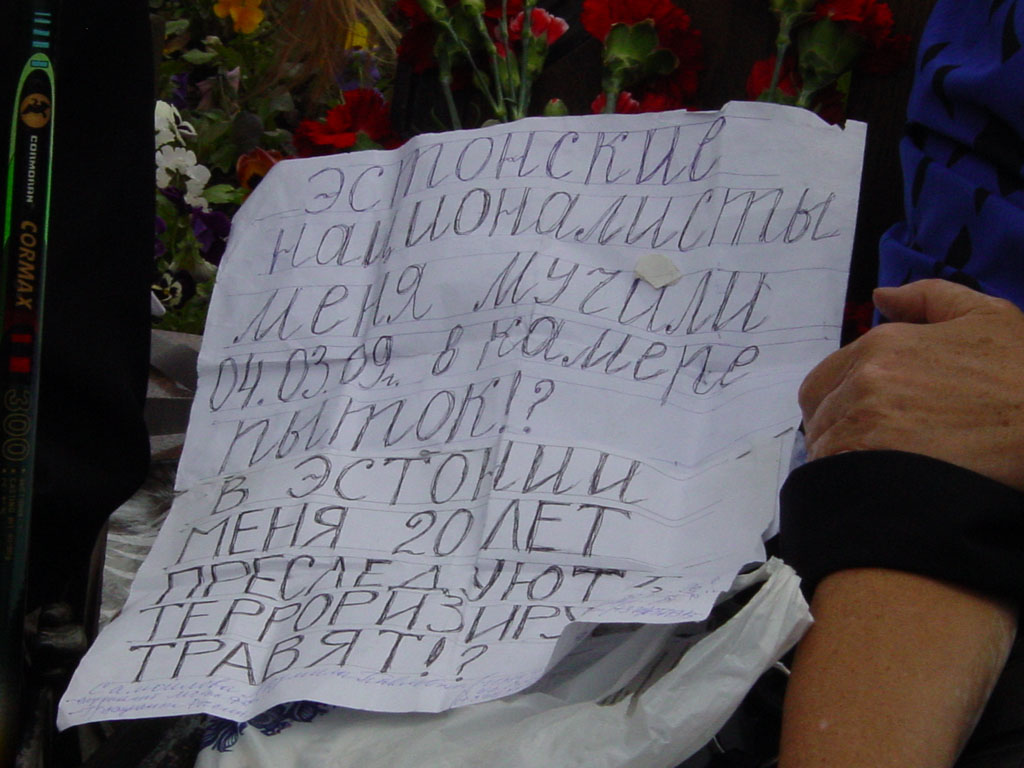 CORMORAN CORMAX 300
ЭСТОНСКИЕ
националисты
меня мучили
04.03.09г. в камере
пыток!?
В ЭСТОНИИ
МЕНЯ 20 ЛЕТ
ПРЕСЛЕДУЮТ
ТЕРРОРИЗИРУ
ТРАВЯТ!?